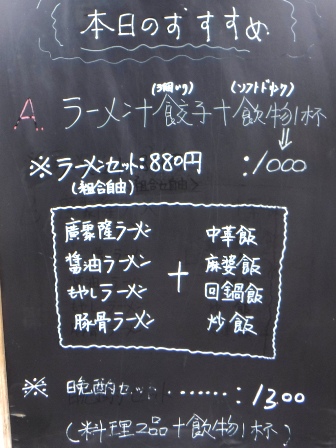 本日のおすすめ
(3個いり) (ソフトドリンク)
A. ラーメン+餃子+飲物1杯
:1000
※ラーメンセット:880円
(組合自由)
廣東麺ラーメン 中華飯
醤油ラーメン + 麻婆飯
もやしラーメン 回鍋飯
豚骨ラーメン 炒飯
※ 晩酌セット‥‥‥:1300
(料理2品+飲物1杯)